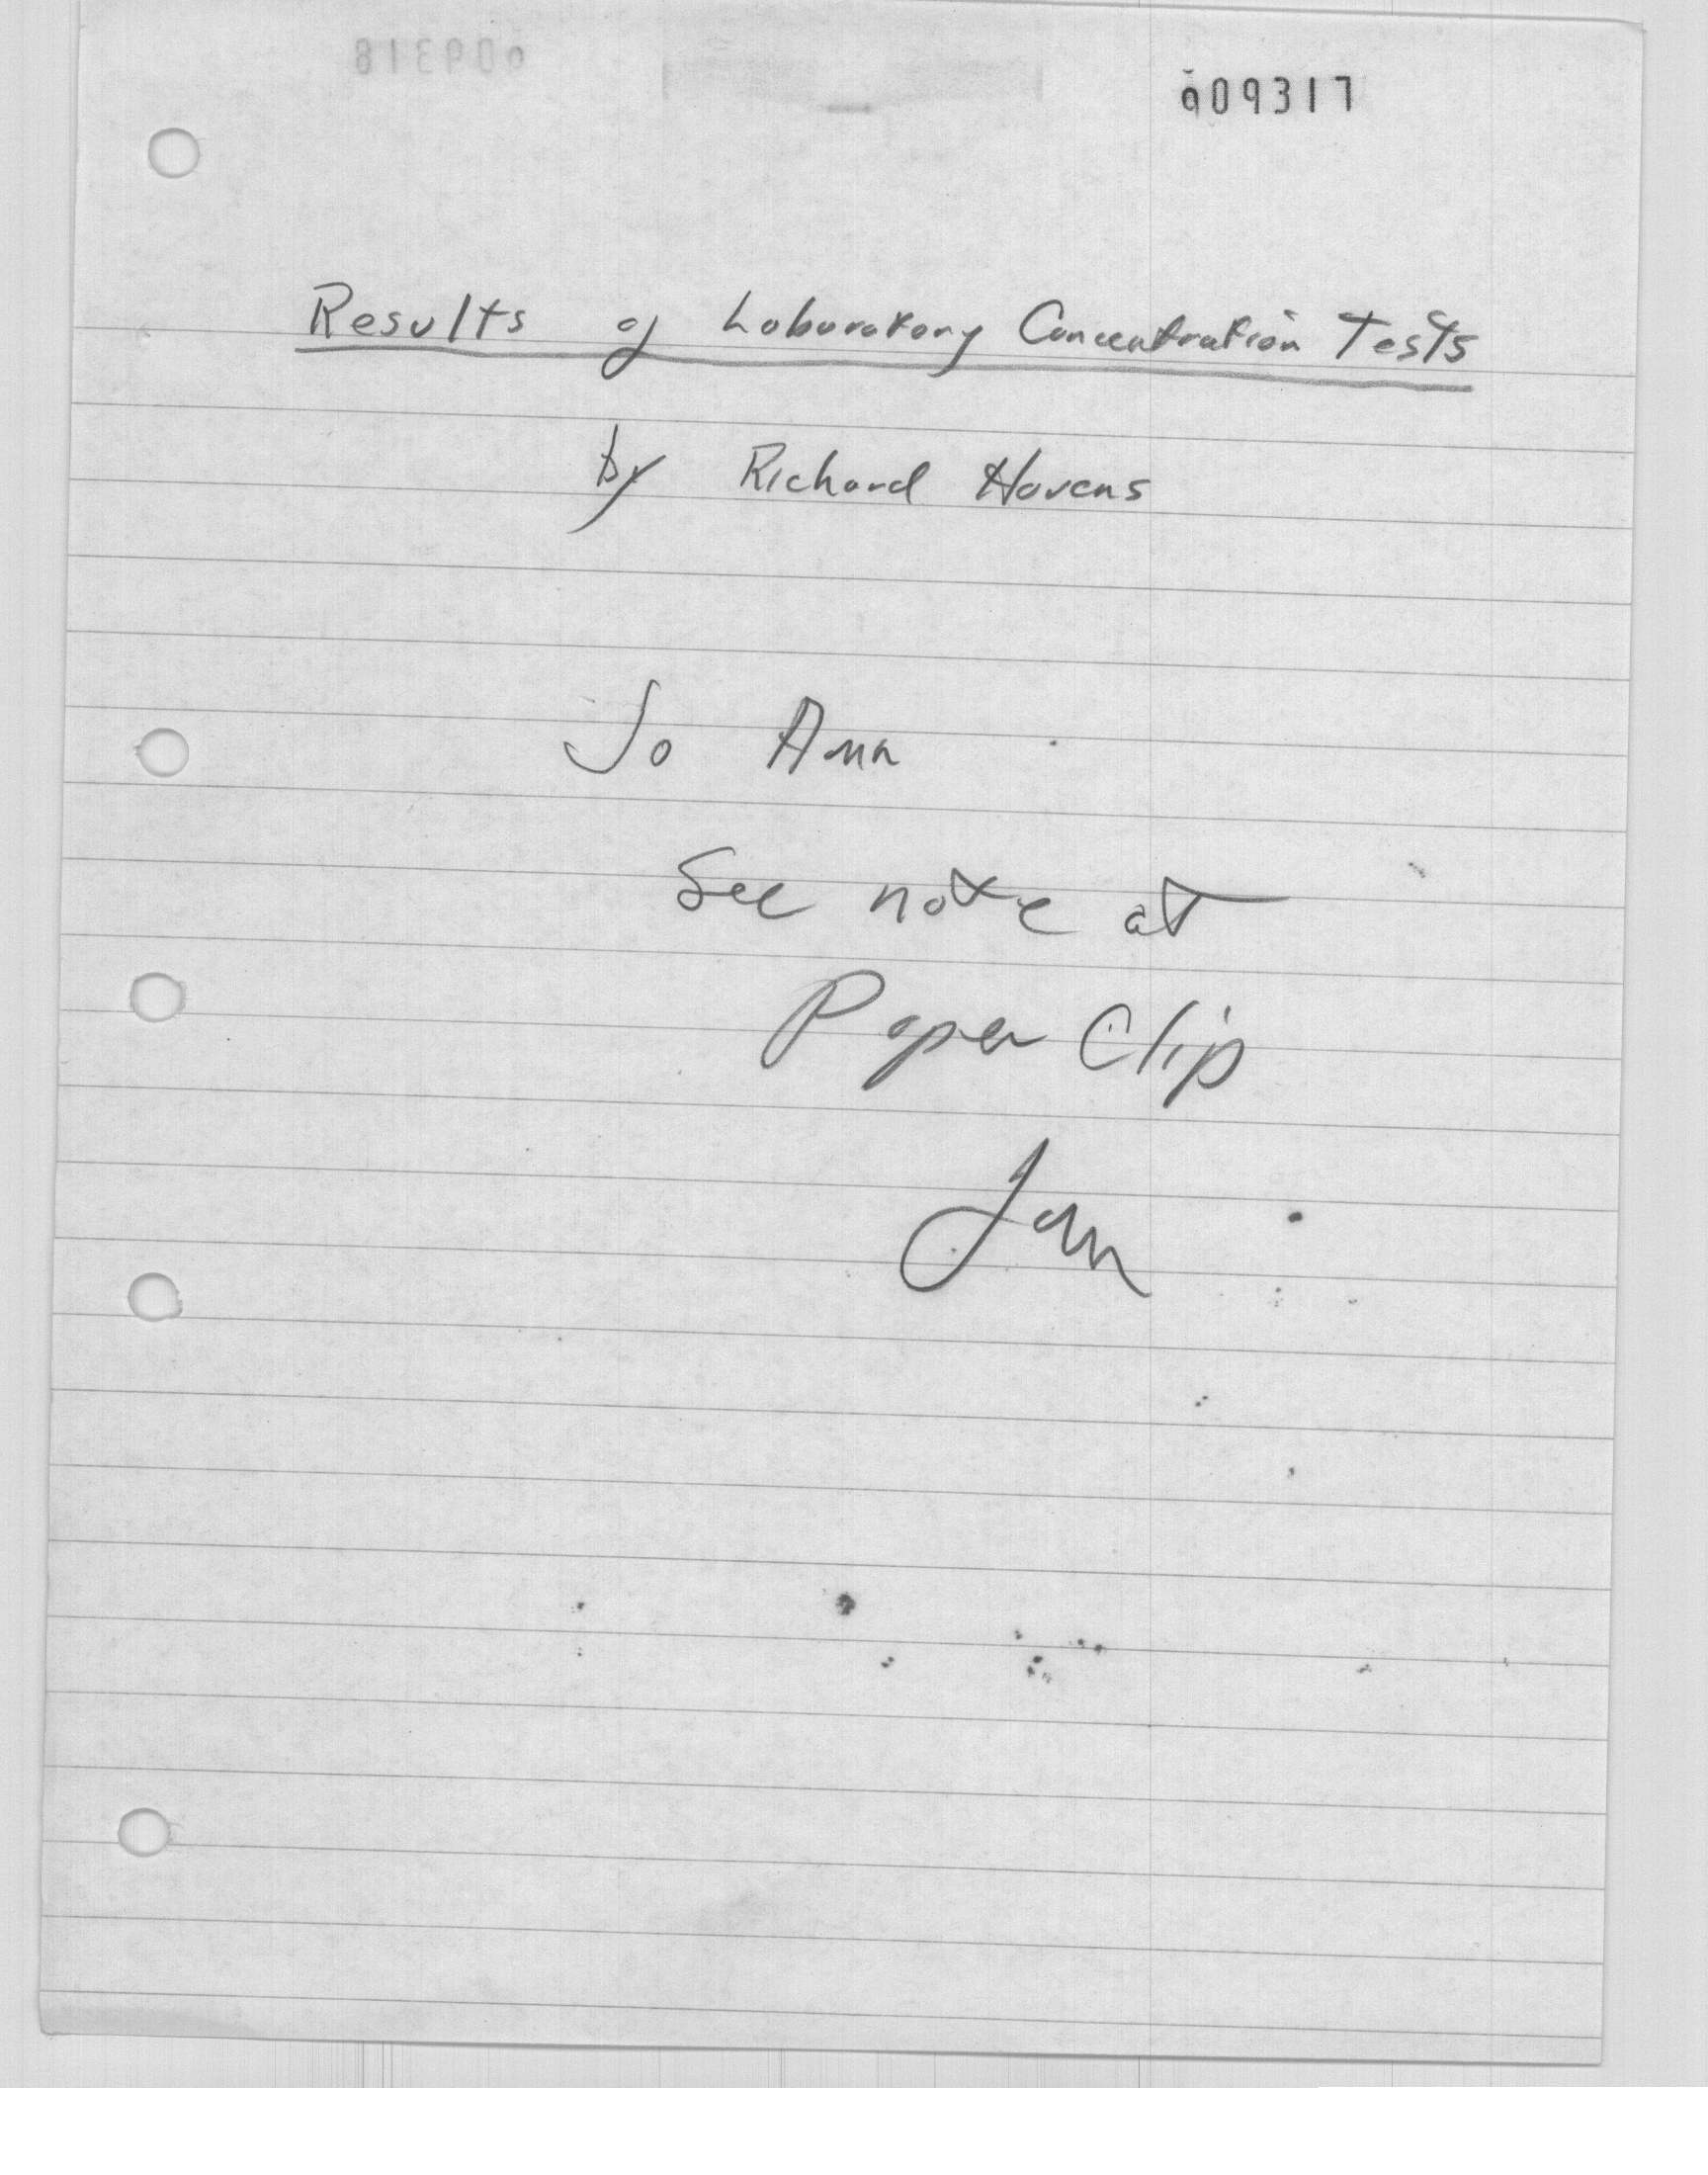 009317
Results of Laboratory Concentration Tests
by Richard Havens
Jo Ann
See note at
Paper Clip